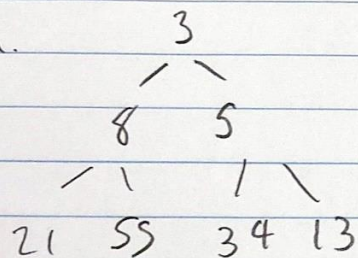 3
8 5
21 55 34 13